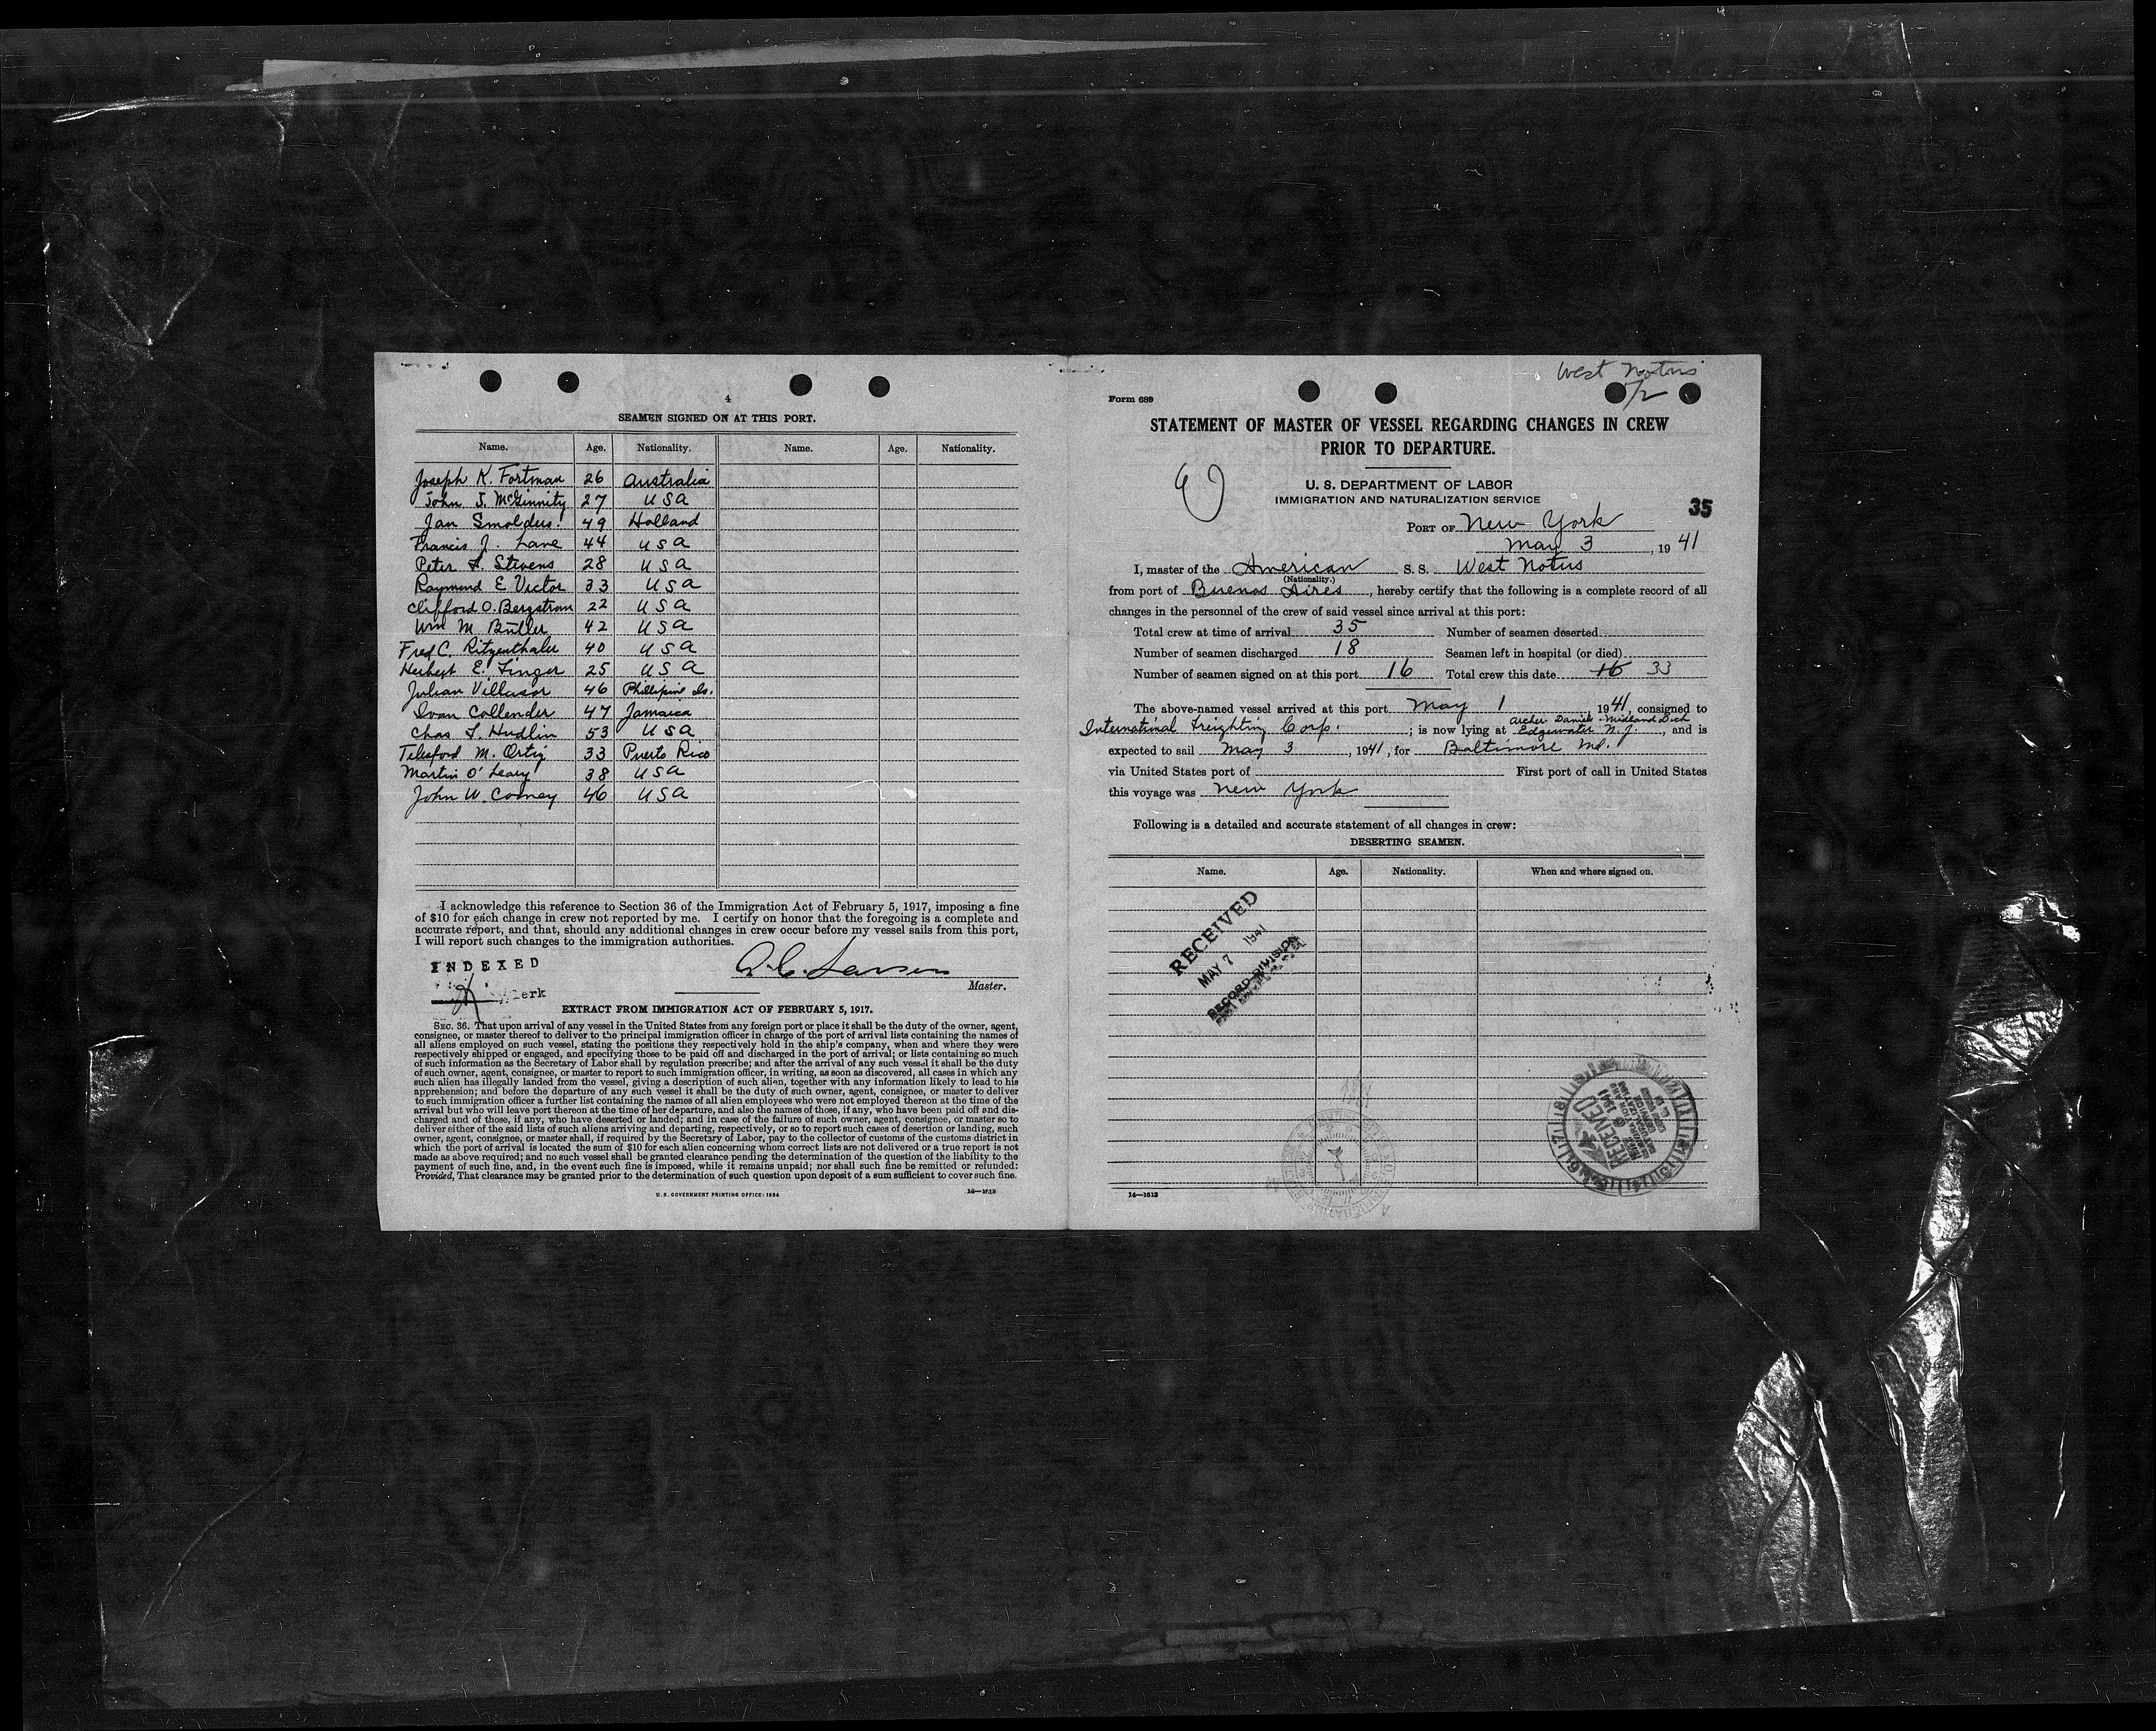 4
SEAMEN SIGNED ON AT THIS PORT.
Name. Age. Nationality. Name. Age. Nationality.
Joseph K. Fortman 26 Australia
John J. McGinnity 27 USA
Jan Smolders 49 Holland
Francis J. Lane 44 USA
Peter F. Stevens 28 USA
Raymond E Victor 33 USA
Clifford O. Bergstrom 22 USA
Wm M. Butler 42 USA
Fred C. Ritzenthaler 40 USA
Herbert E. Finger 25 USA
Julian Villasor 46 Phillipine Is.
Ivan Callender 47 Jamaica
Chas F. Hudlin 53 USA
Telesford M. Ortiz 33 Puerto Rico
Martin O'Leary 38 USA
John W. Cooney 46 USA
I acknowledge this reference to Section 36 of the Immigration Act of February 5, 1917, imposing a fine
of $10 for each change in crew not reported by me. I certify on honor that the foregoing is a complete and
accurate report, and that, should any additional changes in crew occur before my vessel sails from this port,
I will report such changes to the immigration authorities.
INDEXED
Clerk
Larsen
Master.
EXTRACT FROM IMMIGRATION ACT OF FEBRUARY 5, 1917.
SEC. 36. That upon arrival of any vessel in the United States from any foreign port or place it shall be the duty of the owner, agent,
consignee, or master thereof to deliver to the principal immigration officer in charge of the port of arrival lists containing the names of
all aliens employed on such vessel, stating the positions they respectively hold in the ship's company, when and where they were
respectively shipped or engaged, and specifying those to be paid off and discharged in the port of arrival; or lists containing so much
of such information as the Secretary of Labor shall by regulation prescribe; and after the arrival of any such vessel it shall be the duty
of such owner, agent, consignee, or master to report to such immigration officer, in writing, as soon as discovered, all cases in which any
such alien has illegally landed from the vessel, giving a description of such alien, together with any information likely to lead to his
apprehension; and before the departure of any such vessel it shall be the duty of such owner, agent, consignee, or master to deliver
to such immigration officer a further list containing the names of all alien employees who were not employed thereon at the time of the
arrival but who will leave port thereon at the time of her departure, and also the names of those, if any, who have been paid off and dis-
charged and of those, if any, who have deserted or landed; and in case of the failure of such owner, agent, consignee, or master so to
deliver either of the said lists of such aliens arriving and departing, respectively, or so to report such cases of desertion or landing, such
owner, agent, consignee, or master shall, if required by the Secretary of Labor, pay to the collector of customs of the customs district in
which the port of arrival is located the sum of $10 for each alien concerning whom correct lists are not delivered or a true report is not
made as above required; and no such vessel shall be granted clearance pending the determination of the question of the liability to the
payment of such fine, and, in the event such fine is imposed, while it remains unpaid; nor shall such fine be remitted or refunded:
Provided, That clearance may be granted prior to the determination of such question upon deposit of a sum sufficient to cover such fine.
U. S. GOVERNMENT PRINTING OFFICE: 1934 14—1613
West Notus
5/2
Form 689
STATEMENT OF MASTER OF VESSEL REGARDING CHANGES IN CREW
PRIOR TO DEPARTURE.
U. S. DEPARTMENT OF LABOR
IMMIGRATION AND NATURALIZATION SERVICE
35
PORT OF New York
May 3, 1941
I, master of the American S. S. West Notus
(Nationality.)
from port of Buenos Aires, hereby certify that the following is a complete record of all
changes in the personnel of the crew of said vessel since arrival at this port:
Total crew at time of arrival 35 Number of seamen deserted
Number of seamen discharged 18 Seamen left in hospital (or died)
Number of seamen signed on at this port 16 Total crew this date 16 33
The above-named vessel arrived at this port May 1, 1941, consigned to
International Freighting Corp.; is now lying at Archer-Daniels-Midland Dock Edgewater N.J., and is
expected to sail May 3, 1941, for Baltimore Md.
via United States port of First port of call in United States
this voyage was New York
Following is a detailed and accurate statement of all changes in crew:
DESERTING SEAMEN.
Name. Age. Nationality. When and where signed on.
RECEIVED
MAY 7 1941
RECORD DIVISION
RECEIVED
1941
14—1613